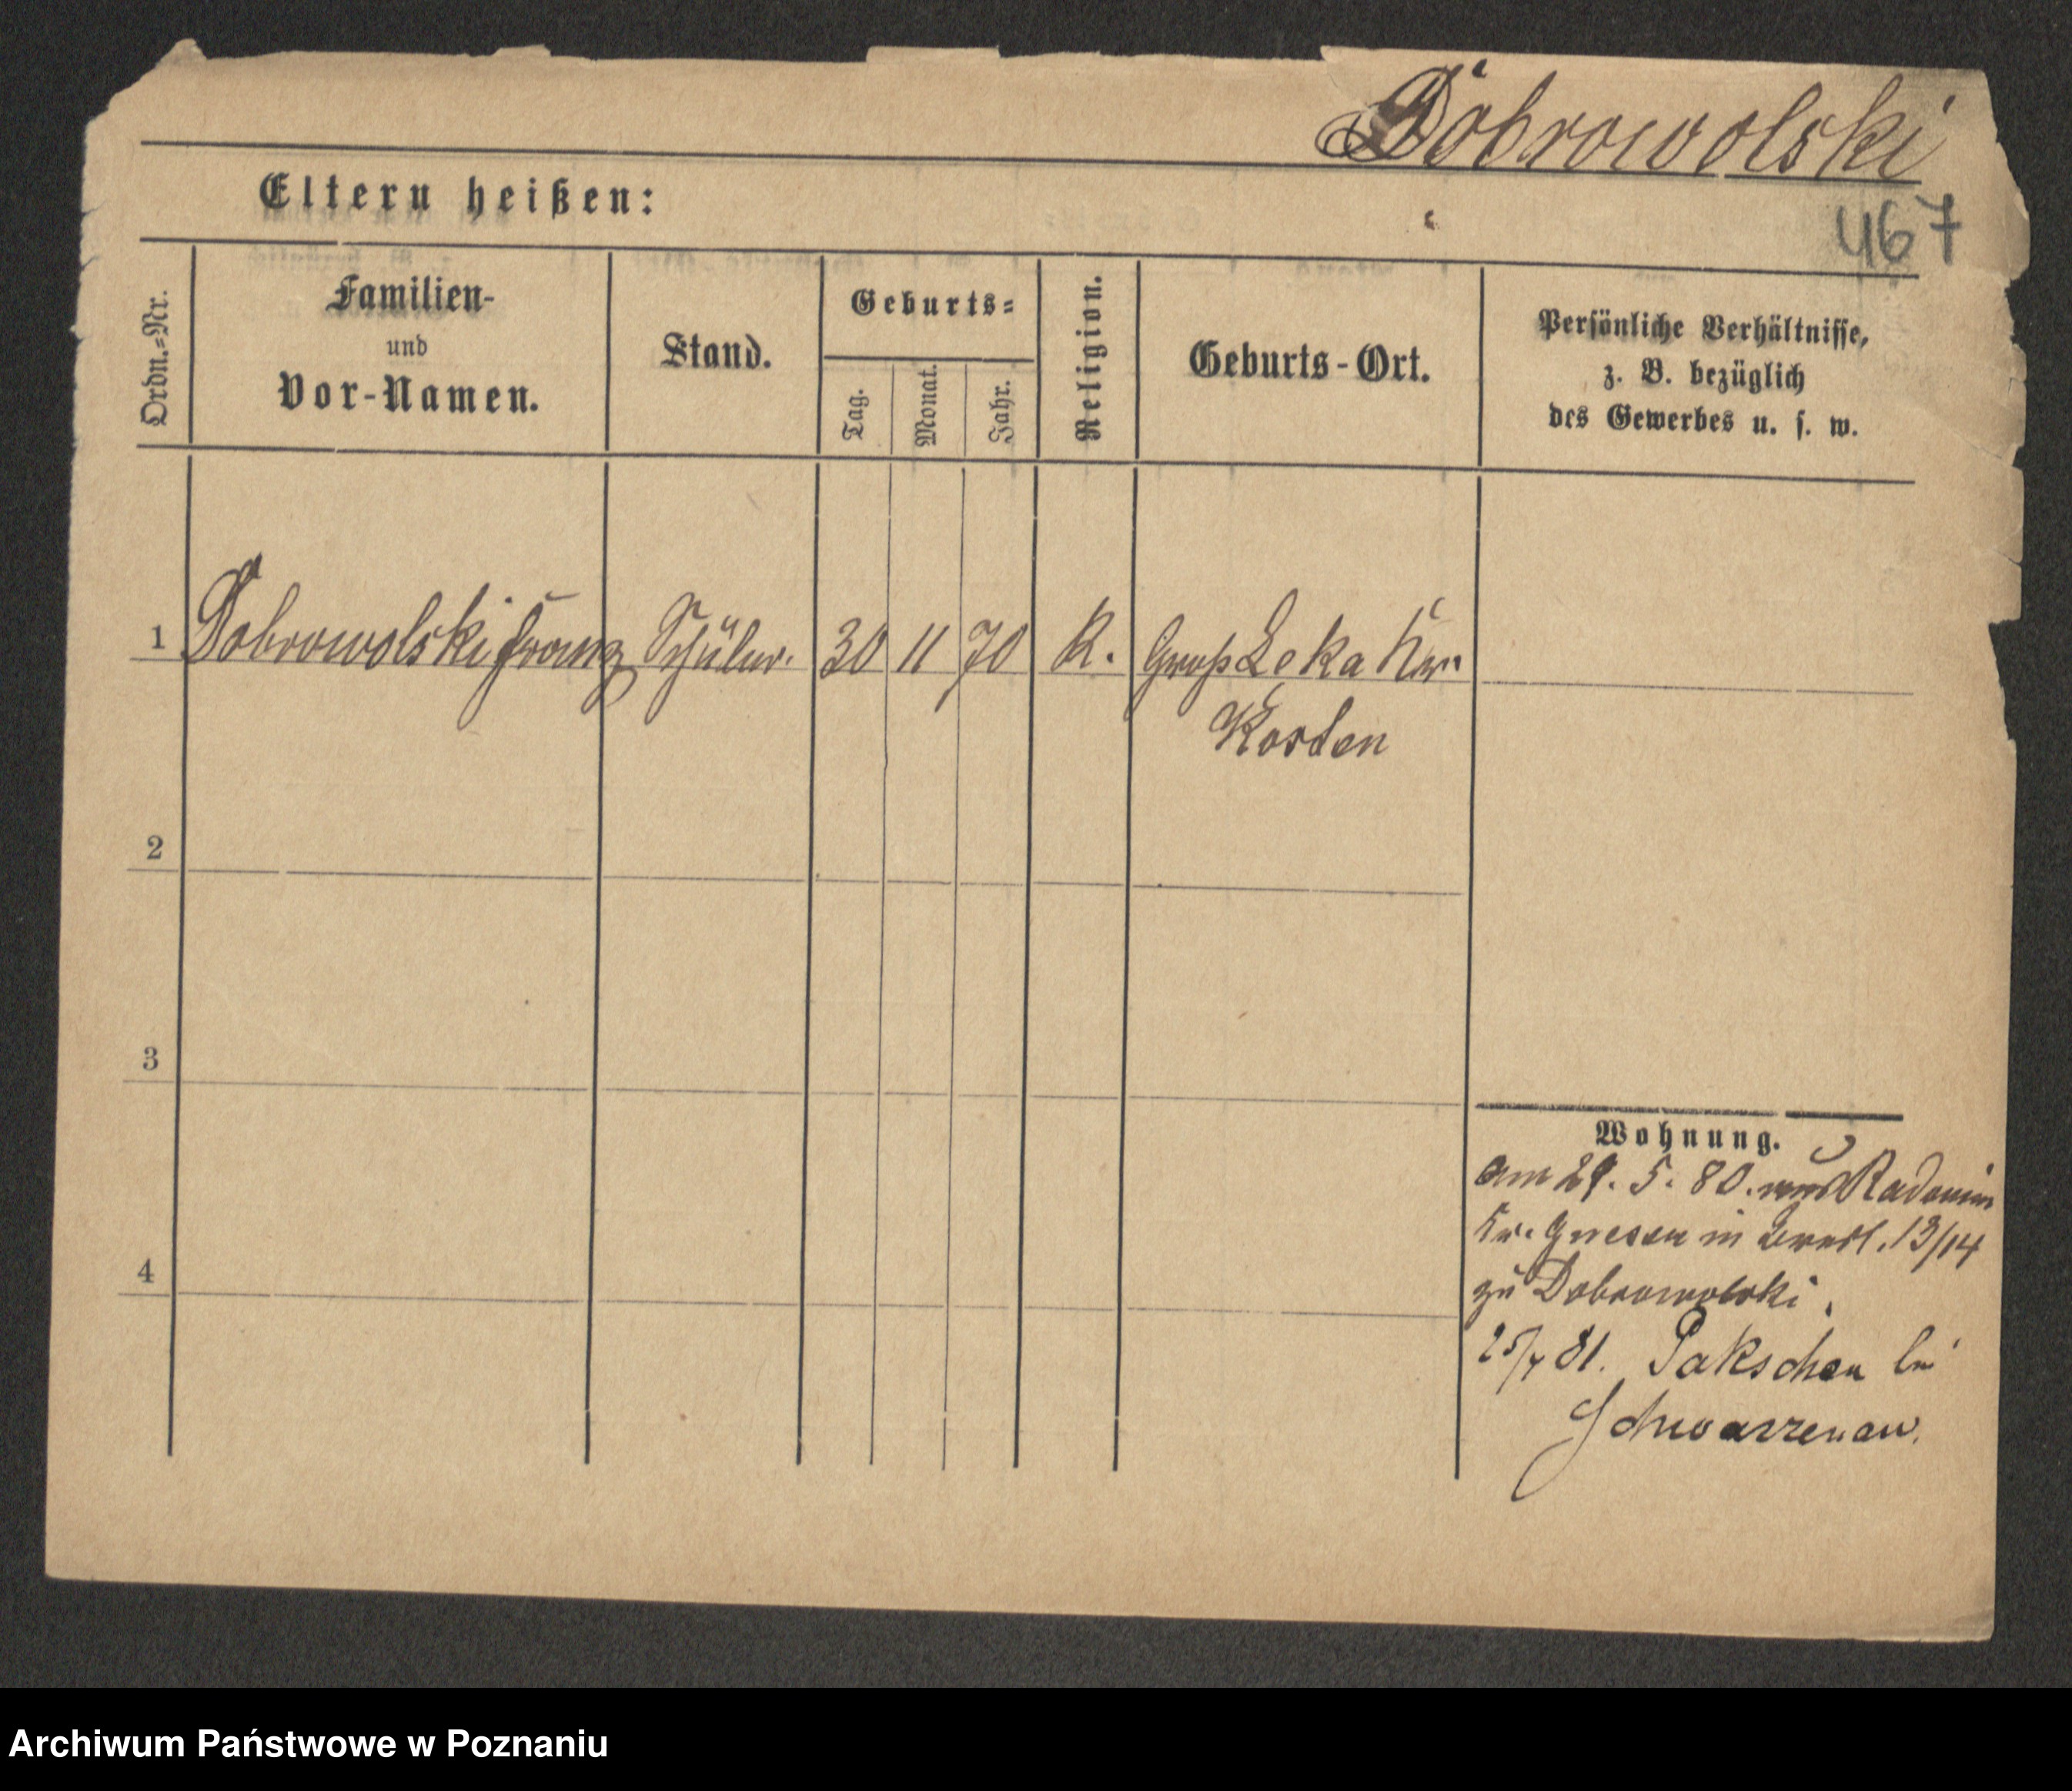 Dobrowolski
Eltern heißen:
467
Ordn.-Nr.
Familien-
und
Vor-Namen.
Stand.
Geburts-
Tag.
Monat.
Jahr.
Religion.
Geburts-Ort.
Persönliche Verhältnisse,
z. B. bezüglich
des Gewerbes u. s. w.
1 Dobrowolski Franz Schüler. 30 11 70 R. Groß Leka Kr.
Kosten
2
3
4
Wohnung.
am 29. 5. 80. aus
Kr. Gnesen in 13/14
zu Dobrowolski.
25/4 81. Pakschen bei
Schwarzenau.
Archiwum Państwowe w Poznaniu